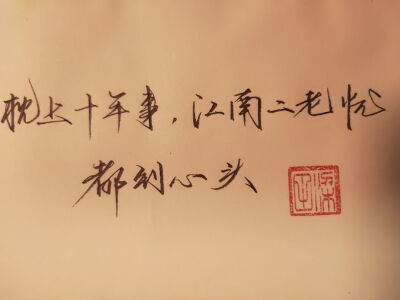 枕上十年事，江南二老忧
都到心头